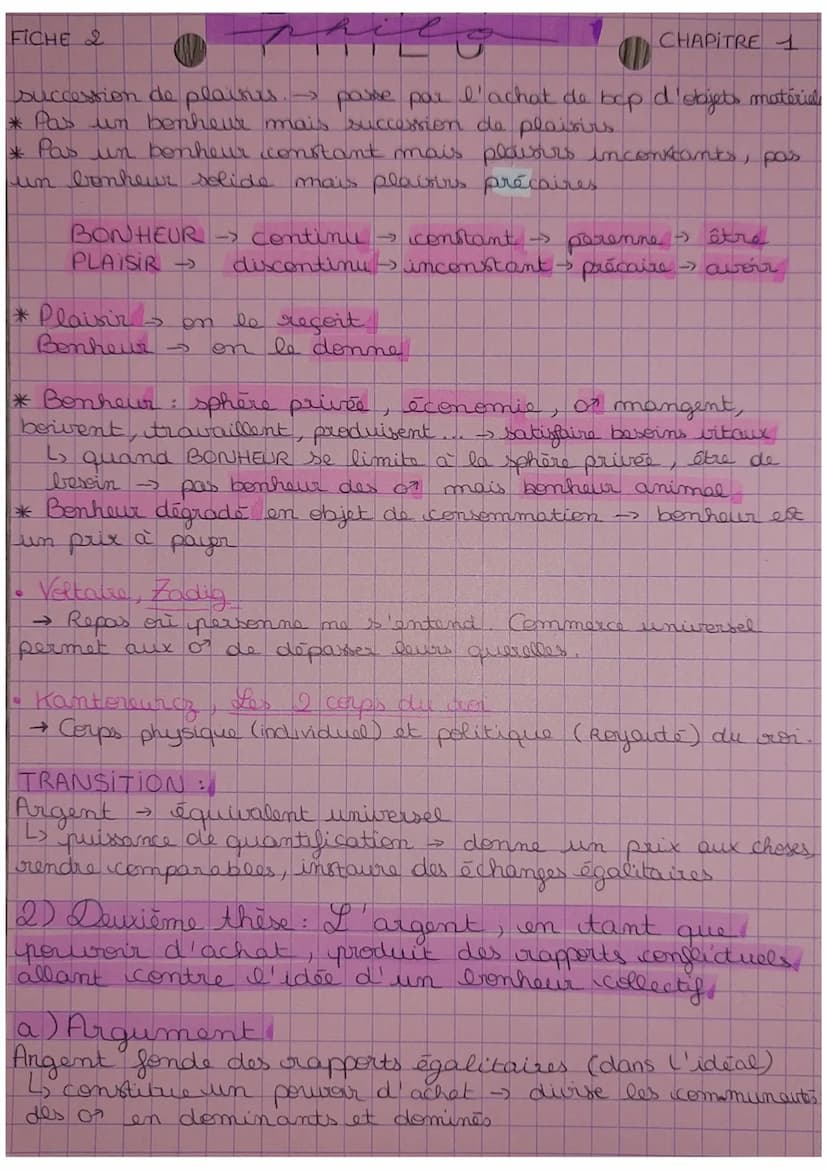 FICHE 2
philo
PHILO
CHAPITRE 1
succession de plaisirs. → passe par l'achat de bcp d'objets matériels
* Pas un bonheur mais succession de plaisirs
* Pas un bonheur constant mais plaisirs inconstants, pas
un bonheur solide mais plaisirs précaires
BONHEUR → continu → constant → perenne → être
PLAISIR → discontinu → inconstant → précaire → avoir
* Plaisir → on le reçoit
Bonheur → on le donne
* Bonheur : sphère privée, économie, ♂ mangent,
boivent, travaillent, produisent... → satisfaire besoins vitaux
↳ quand BONHEUR se limite à la sphère privée, être de
besoin → pas bonheur des ♂ mais bonheur animal
* Bonheur dégradé en objet de consommation → bonheur est
un prix à payer
• Voltaire, Zadig
→ Repas où personne ne s'entend. Commerce universel
permet aux ♂ de dépasser leurs querelles.
• Kantoreurcz, Les 2 corps du roi
→ Corps physique (individuel) et politique (Royauté) du roi.
TRANSITION :
Argent → équivalent universel
↳ puissance de quantification → donne un prix aux choses,
rendre comparables, instaure des échanges égalitaires
2) Deuxième thèse : L'argent, en tant que
pouvoir d'achat, produit des rapports conflictuels
allant contre l'idée d'un bonheur collectif
a) Argument
Argent fonde des rapports égalitaires (dans l'idéal)
↳ constitue un pouvoir d'achat → divise les communautés
des ♂ en dominants et dominés